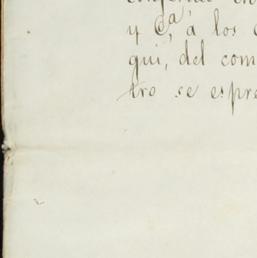 y Cª, á los
qui, del com
tro se espre